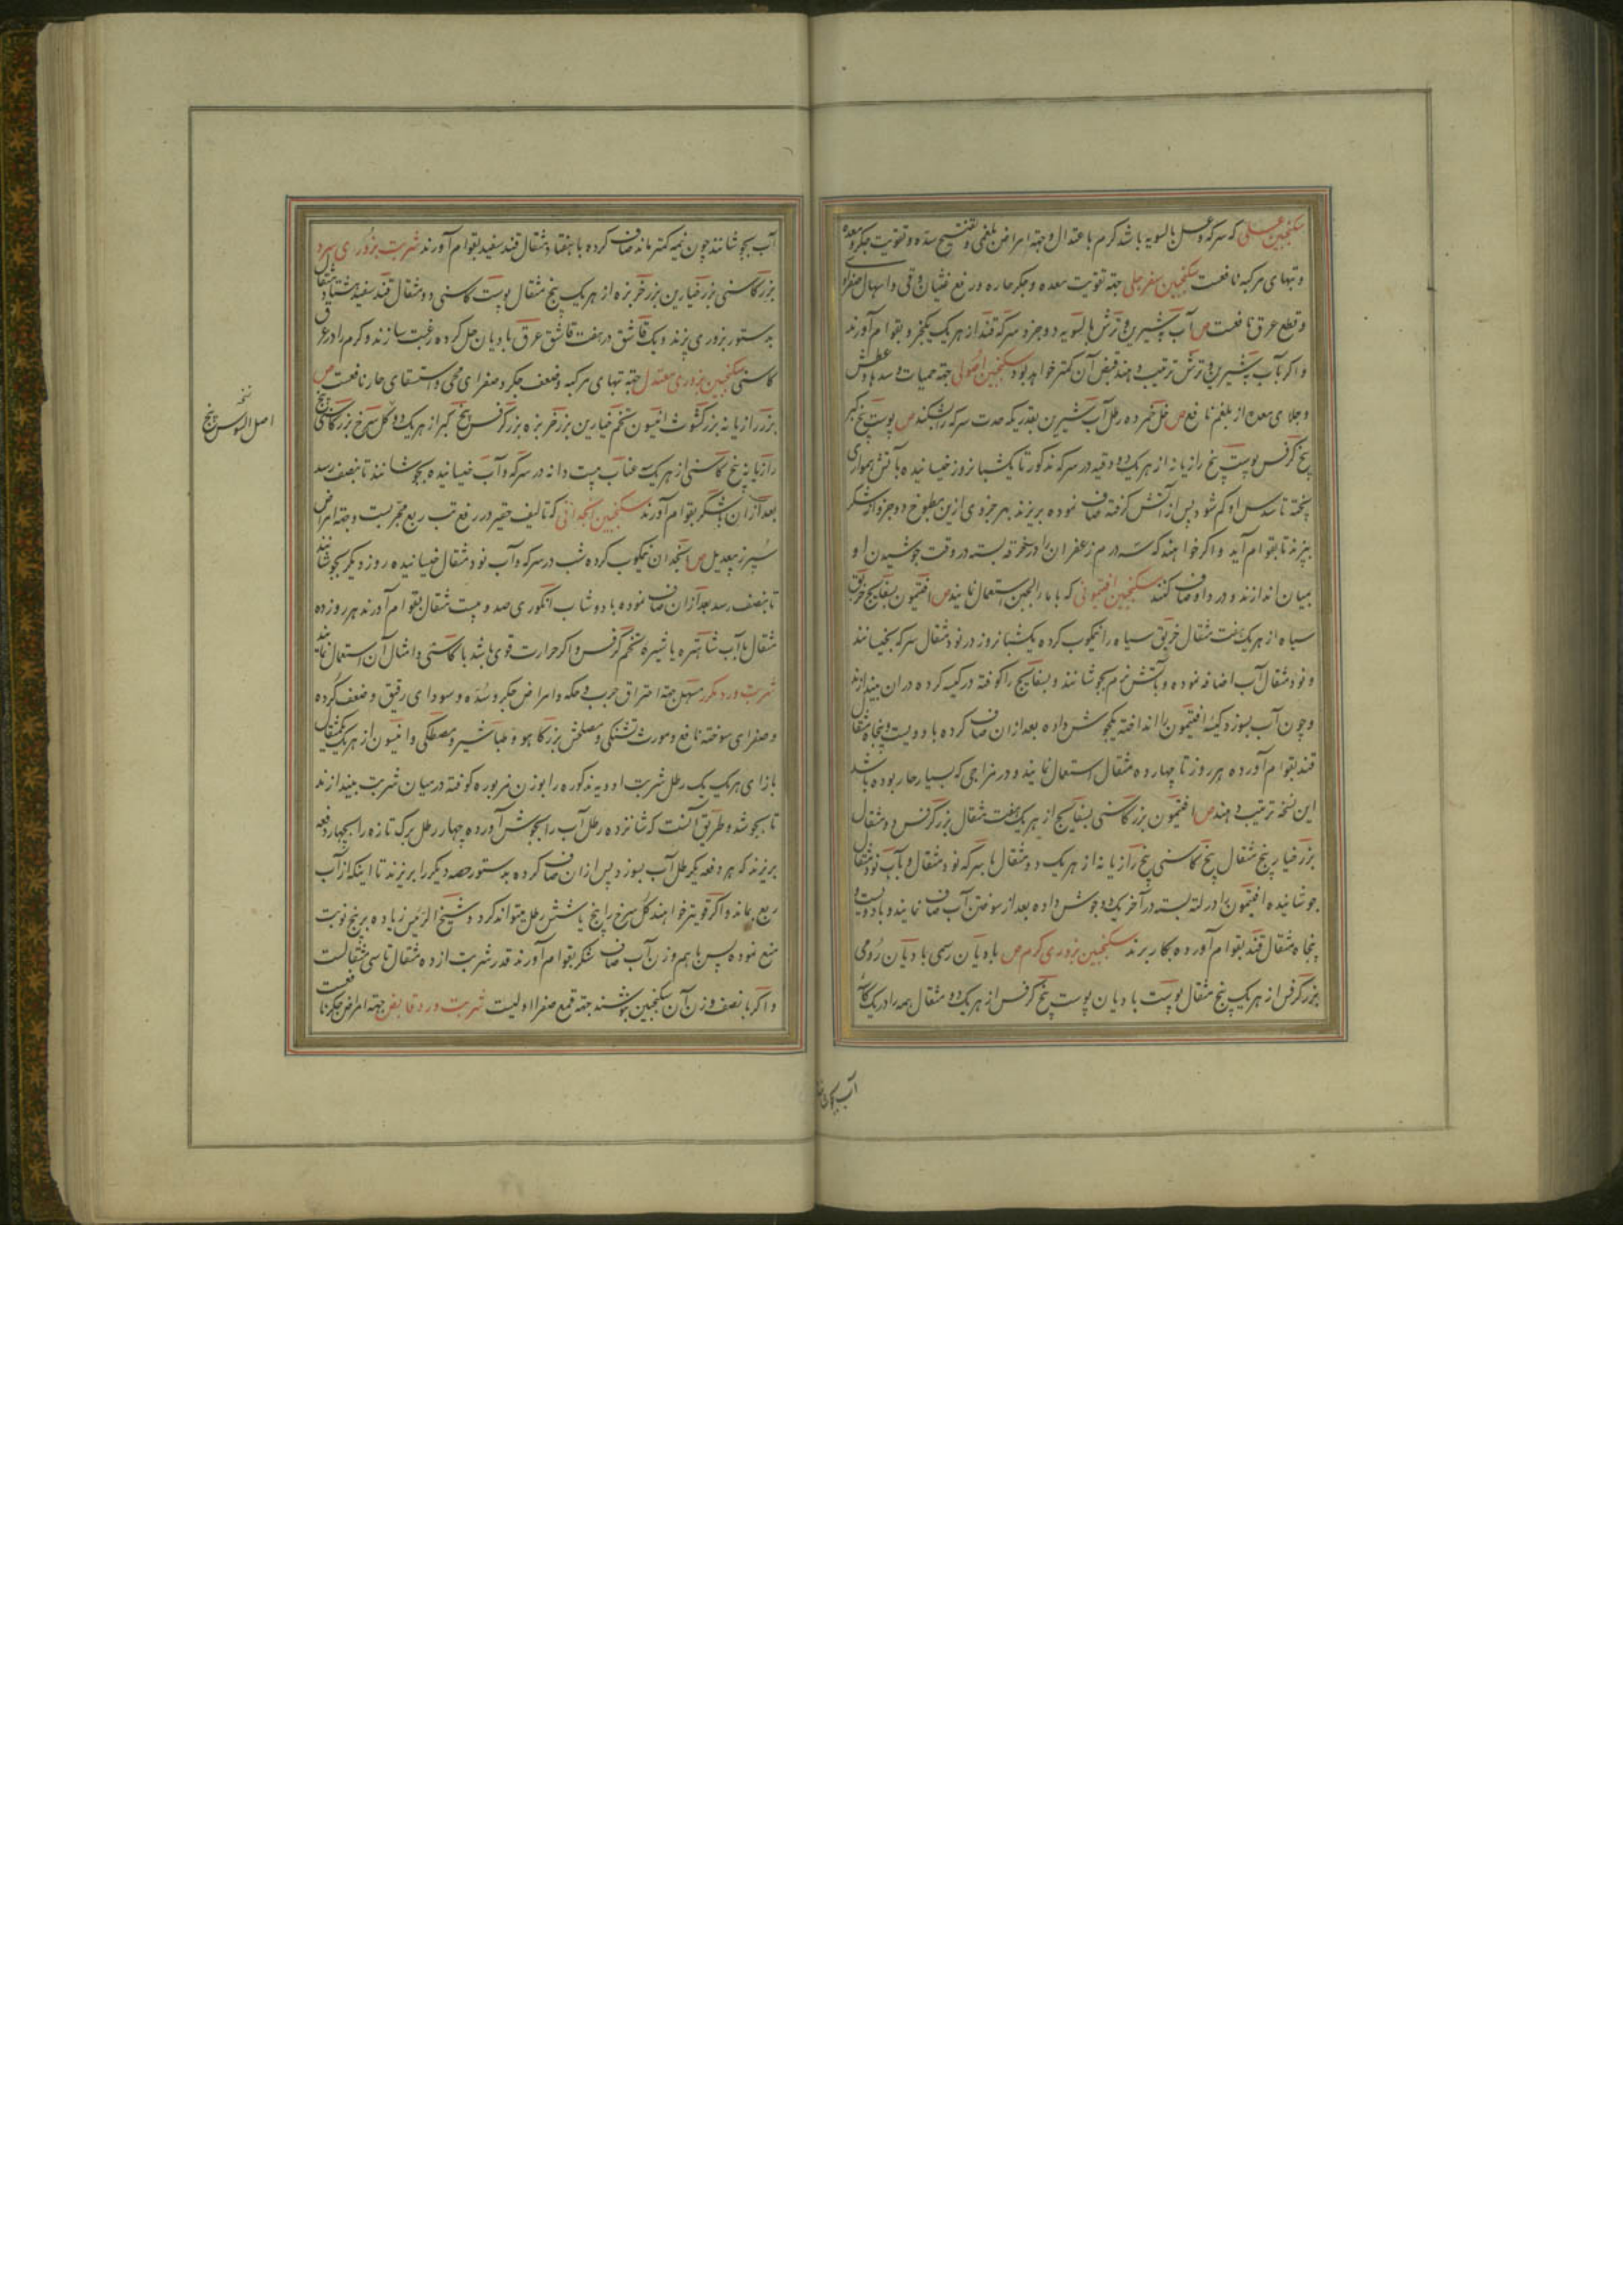 سکنجبین عسلی که سرکه و عسل بالسویه باشد گرم باعتدال و جهة امراض بلغمی و تفتیح سده و تقویت جگر و معده
و تبهای مرکبه نافعست سکنجبین سفرجلی جهة تقویت معده و جگر حاره و رفع غثیان و قی و اسهال صفراوی
و قطع عرق نافعست ص آب به شیرین و ترش بالسویه دو جزو سرکه قند از هر یک یکجزو بقوام آورند
و اگر بآب به شیرین و ترش ترتیب دهند قبض آن کمتر خواهد بود سکنجبین اصولی جهة حمیات و سدها و عطش
و جلای معده از بلغم نافع ص خل خمر ده رطل آب شیرین بقدریکه حدت سرکه را بشکند ص پوست بیخ کبر
بیخ کرفس پوست بیخ رازیانه از هر یک دو وقیه در سرکه مذکور تا یک شبانروز خیسانیده بآتش همواری
پخته تا سدس او کم شود پس از آتش گرفته صاف نموده بریزند بهر جزوی ازین مطبوخ دو جزو از شکر
بپزند تا بقوام آید و اگر خواهند که سه درم زعفران را در خرقه بسته در وقت جوشیدن او
بمیان اندازند و درد او صاف کنند سکنجبین افتیمونی که با ماء الجبن استعمال نمایند ص افتیمون بسفایج خربق
سیاه از هر یک هفت مثقال خربق سیاه را نیمکوب کرده یکشبانروز در نود مثقال سرکه بخیسانند
و نود مثقال آب اضافه نموده و بآتش نرم بجوشانند و بسفایج را کوفته در کیسه کرده در ان بیندازند
و چون آب بسوزد کیسه افتیمون را انداخته یکجوش داده بعد ازان صاف کرده با دویست و پنجاه مثقال
قند بقوام آورده هر روز تا چهارده مثقال استعمال نمایند و در مزاجی که بسیار حار بوده باشد
این نسخه ترتیب دهند ص افتیمون بزر کاسنی بسفایج از هر یک هفت مثقال بزر کرفس دو مثقال
بزر خیار پنج مثقال بیخ کاسنی بیخ رازیانه از هر یک دو مثقال با سرکه نود مثقال و بآب نود مثقال
جوشانیده افتیمون را در لته بسته در آخر یک دو جوش داده بعد از سوختن آب صاف نمایند و با دویست و
پنجاه مثقال قند بقوام آورده بکار برند سکنجبین بزوری گرم ص بادیان رسمی بادیان رومی
بزر کرفس از هر یک پنج مثقال پوست بادیان پوست بیخ کرفس از هر یک دو مثقال همه را در یک کاسه
آب بجوشانند چون نیمه کمتر ماند صاف کرده با هفتاد مثقال قند سفید بقوام آورند شربت بزوری سرد
بزر کاسنی بزر خیارین بزر خربزه از هر یک پنج مثقال پوست کاسنی دو مثقال قند سفید هشتاد مثقال
بدستور بزوری پزند و یک قاشق در هفت قاشق عرق بادیان حل کرده رغبت سازند و گرم را در عرق
کاسنی سکنجبین بزوری معتدل جهة تبهای مرکبه و ضعف جگر و صفرای محی و استسقای حار نافعست ص
بزر رازیانه بزر کشوث انیسون تخم خیارین بزر خربزه بزر کرفس بیخ کبر از هر یک دو گل سرخ بزر کاسنی بیخ
رازیانه بیخ کاسنی از هر یک سه عناب بیست دانه در سرکه و آب خیسانیده بجوشانند تا بنصف رسد
بعد ازان با شکر بقوام آورند سکنجبین انجدانی که تالیف حقیر در رفع تب ربع مجربست و جهة امراض
سپرز بیعدیل ص انجدان نیمکوب کرده شب در سرکه و آب نود مثقال خیسانیده روز دیگر بجوشانند
تا بنصف رسد بعد ازان صاف نموده با دوشاب انگوری صد و بیست مثقال بقوام آورند هر روز ده
مثقال با آب شاهتره یا شیره تخم کرفس و اگر حرارت قوی باشد با کاسنی و امثال آن استعمال نمایند
شربت ورد مکرر مسهل جهة احتراق جرب و حکه و امراض جگر و سده و سودای رقیق و ضعف گرده
و صفرای سوخته نافع و مورث تشنگی و مصلحش بزر کاهو و طباشیر و مصطکی و انیسون از هر یک یکمثقال
بازای هر یک یک رطل شربت ادویه مذکوره را بوزن مزبوره کوفته در میان شربت بیندازند
تا بجوشد و طریق آنست که شانزده رطل آب را بجوش آورده چهار رطل برگ تازه را بچهار دفعه
بریزند که هر دفعه یکرطل آب بسوزد پس ازان صاف کرده بدستور حصه دیگر را بریزند تا اینکه از آب
ربع بماند و اگر قویتر خواهند گل سرخ را پنج یا شش رطل میتواند کرد و شیخ الرئیس زیاده بر پنج نوبت
منع نموده پس با هم وزن آب صاف شکر بقوام آورند قدر شربت از ده مثقال تا سی مثقالست
و اگر با نصف وزن آن سکنجبین بنوشند جهة قمع صفرا اولیست شربت ورد قابض جهة امراض جگر نافعست
نسخه
اصل السوس پنج
آب